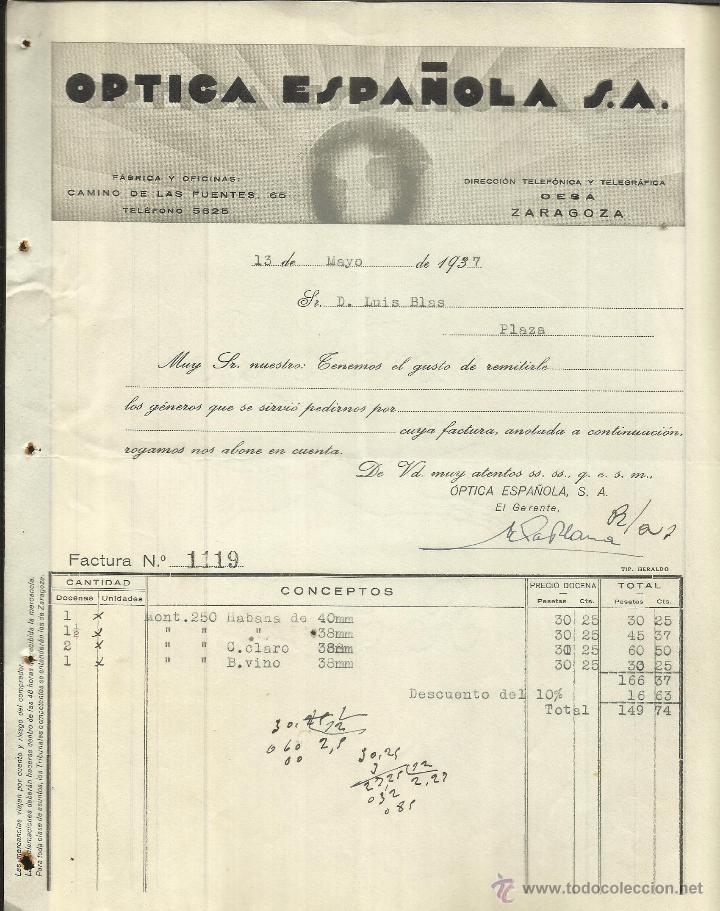 OPTICA ESPAÑOLA S.A.
FÁBRICA Y OFICINAS:
CAMINO DE LAS FUENTES, 65
TELÉFONO 5625
DIRECCIÓN TELEFÓNICA Y TELEGRÁFICA
OESA
ZARAGOZA
13 de Mayo de 1937
Sr. D. Luis Blas
Plaza
Muy Sr. nuestro: Tenemos el gusto de remitirle
los géneros que se sirvió pedirnos por
cuya factura, anotada a continuación,
rogamos nos abone en cuenta.
De Vd. muy atentos ss. ss., q. e. s. m.,
ÓPTICA ESPAÑOLA, S. A.
El Gerente,
Factura N.º 1119
TIP. HERALDO
CANTIDAD CONCEPTOS PRECIO DOCENA TOTAL
Docenas Unidades Pesetas Cts. Pesetas Cts.
1 x Mont.250 Habana de 40mm 30 25 30 25
1½ x " " " 38mm 30 25 45 37
2 x " " C.claro 38mm 30 25 60 50
1 x " " B.vino 38mm 30 25 30 25
166 37
Descuento del 10% 16 63
Total 149 74
30,25
3
27,25 12
032 2,27
085
Las mercancías viajan por cuenta y riesgo del comprador.
Las reclamaciones deberán hacerse dentro de las 48 horas de recibida la mercancía.
Para toda clase de asuntos, los Tribunales competentes se entenderán los de Zaragoza.
www.todocoleccion.net